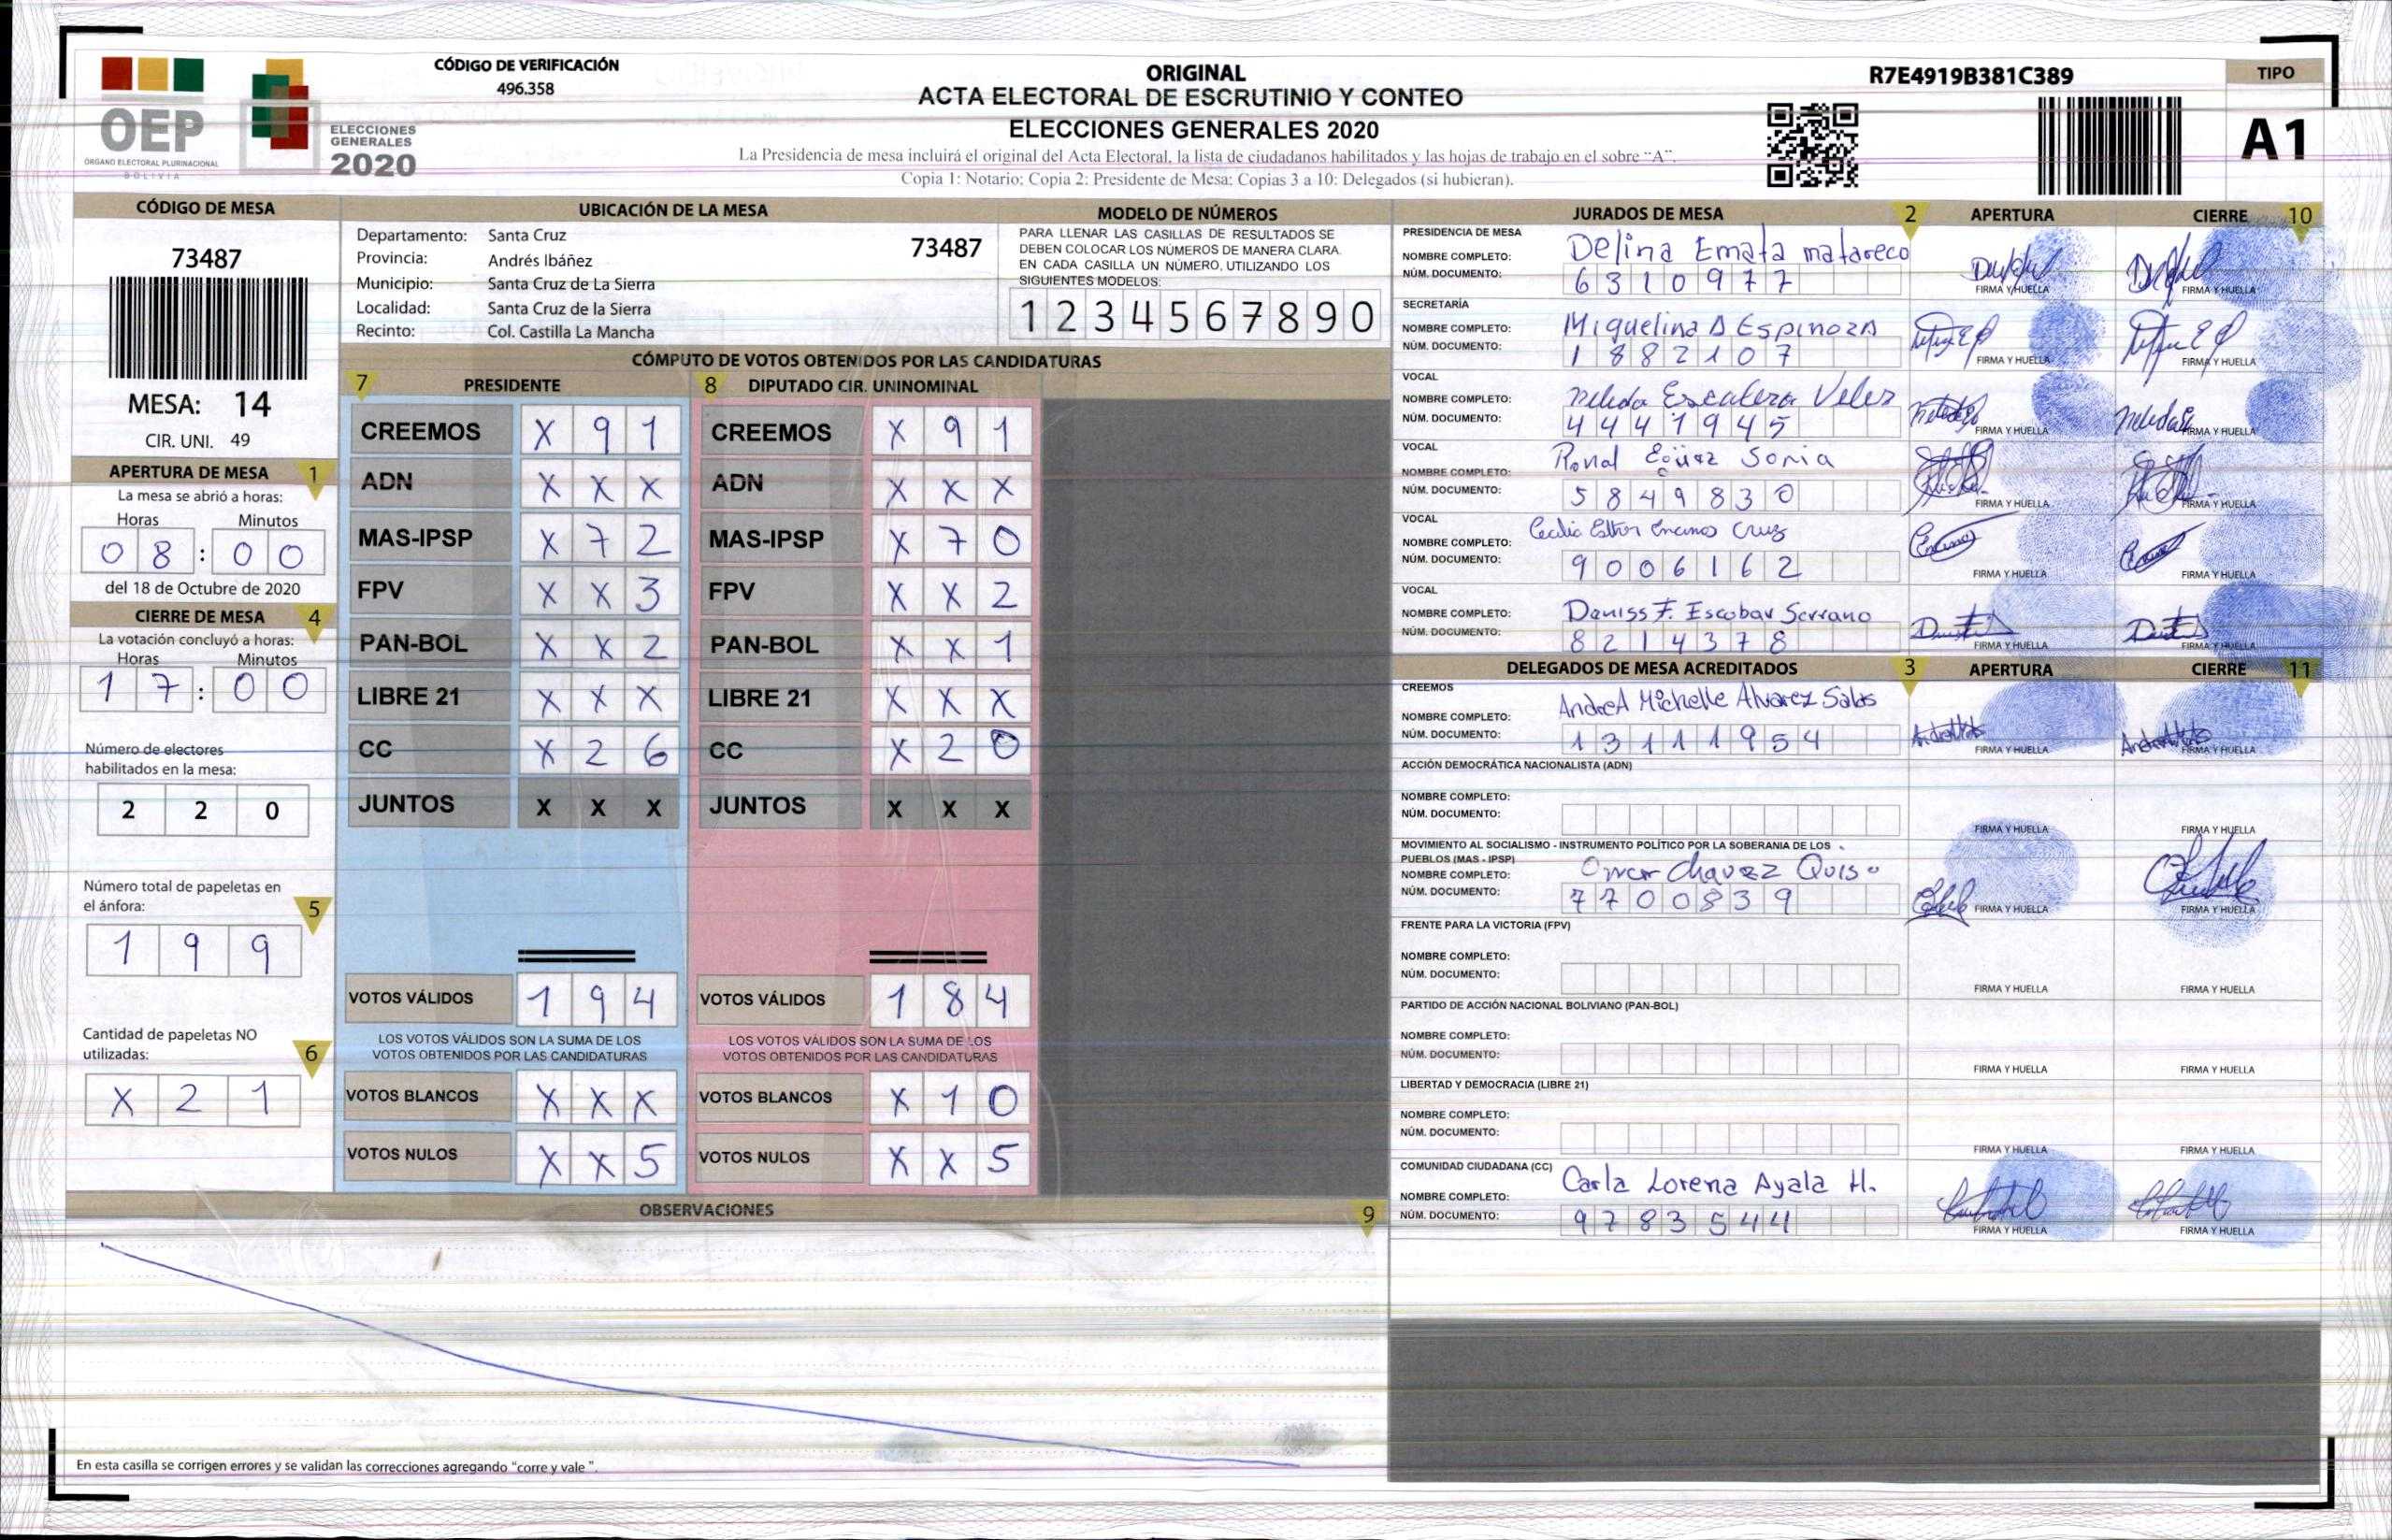 OEP
ÓRGANO ELECTORAL PLURINACIONAL
BOLIVIA
ELECCIONES
GENERALES
2020
CÓDIGO DE VERIFICACIÓN
496.358
ORIGINAL
ACTA ELECTORAL DE ESCRUTINIO Y CONTEO
ELECCIONES GENERALES 2020
La Presidencia de mesa incluirá el original del Acta Electoral, la lista de ciudadanos habilitados y las hojas de trabajo en el sobre "A".
Copia 1: Notario; Copia 2: Presidente de Mesa; Copias 3 a 10: Delegados (si hubieran).
R7E4919B381C389
TIPO
A1
CÓDIGO DE MESA
73487
MESA: 14
CIR. UNI. 49
APERTURA DE MESA 1
La mesa se abrió a horas:
Horas Minutos
0 8 : 0 0
del 18 de Octubre de 2020
CIERRE DE MESA 4
La votación concluyó a horas:
Horas Minutos
1 7 : 0 0
Número de electores
habilitados en la mesa:
2 2 0
Número total de papeletas en
el ánfora: 5
1 9 9
Cantidad de papeletas NO
utilizadas: 6
X 2 1
UBICACIÓN DE LA MESA
Departamento: Santa Cruz
73487
Provincia: Andrés Ibáñez
Municipio: Santa Cruz de La Sierra
Localidad: Santa Cruz de la Sierra
Recinto: Col. Castilla La Mancha
MODELO DE NÚMEROS
PARA LLENAR LAS CASILLAS DE RESULTADOS SE
DEBEN COLOCAR LOS NÚMEROS DE MANERA CLARA.
EN CADA CASILLA UN NÚMERO, UTILIZANDO LOS
SIGUIENTES MODELOS:
1 2 3 4 5 6 7 8 9 0
CÓMPUTO DE VOTOS OBTENIDOS POR LAS CANDIDATURAS
7 PRESIDENTE
CREEMOS X 9 1
ADN X X X
MAS-IPSP X 7 2
FPV X X 3
PAN-BOL X X 2
LIBRE 21 X X X
CC X 2 6
JUNTOS X X X
VOTOS VÁLIDOS 1 9 4
LOS VOTOS VÁLIDOS SON LA SUMA DE LOS
VOTOS OBTENIDOS POR LAS CANDIDATURAS
VOTOS BLANCOS X X X
VOTOS NULOS X X 5
8 DIPUTADO CIR. UNINOMINAL
CREEMOS X 9 1
ADN X X X
MAS-IPSP X 7 0
FPV X X 2
PAN-BOL X X 1
LIBRE 21 X X X
CC X 2 0
JUNTOS X X X
VOTOS VÁLIDOS 1 8 4
LOS VOTOS VÁLIDOS SON LA SUMA DE LOS
VOTOS OBTENIDOS POR LAS CANDIDATURAS
VOTOS BLANCOS X 1 0
VOTOS NULOS X X 5
OBSERVACIONES 9
En esta casilla se corrigen errores y se validan las correcciones agregando "corre y vale".
JURADOS DE MESA 2 APERTURA CIERRE 10
PRESIDENCIA DE MESA
NOMBRE COMPLETO: Delina Emata matareco
NÚM. DOCUMENTO: 6 3 1 0 9 7 7
FIRMA Y HUELLA FIRMA Y HUELLA
SECRETARÍA
NOMBRE COMPLETO: Miguelina A Espinoza
NÚM. DOCUMENTO: 1 8 8 2 1 0 7
FIRMA Y HUELLA FIRMA Y HUELLA
VOCAL
NOMBRE COMPLETO: Nelida Escalera Velez
NÚM. DOCUMENTO: 4 4 4 1 9 4 5
FIRMA Y HUELLA FIRMA Y HUELLA
VOCAL
NOMBRE COMPLETO: Ronal Eguez Sonia
NÚM. DOCUMENTO: 5 8 4 9 8 3 0
FIRMA Y HUELLA FIRMA Y HUELLA
VOCAL
NOMBRE COMPLETO: Cecilia Esther Cruz
NÚM. DOCUMENTO: 9 0 0 6 1 6 2
FIRMA Y HUELLA FIRMA Y HUELLA
VOCAL
NOMBRE COMPLETO: Daniss F. Escobar Serrano
NÚM. DOCUMENTO: 8 2 1 4 3 7 8
FIRMA Y HUELLA FIRMA Y HUELLA
DELEGADOS DE MESA ACREDITADOS 3 APERTURA CIERRE 11
CREEMOS
NOMBRE COMPLETO: AndreA Michelle Alvarez Salas
NÚM. DOCUMENTO: 1 3 1 1 1 9 5 4
FIRMA Y HUELLA FIRMA Y HUELLA
ACCIÓN DEMOCRÁTICA NACIONALISTA (ADN)
NOMBRE COMPLETO:
NÚM. DOCUMENTO:
FIRMA Y HUELLA FIRMA Y HUELLA
MOVIMIENTO AL SOCIALISMO - INSTRUMENTO POLÍTICO POR LA SOBERANIA DE LOS
PUEBLOS (MAS - IPSP)
NOMBRE COMPLETO: Omar Chavez Quiso
NÚM. DOCUMENTO: 7 7 0 0 8 3 9
FIRMA Y HUELLA FIRMA Y HUELLA
FRENTE PARA LA VICTORIA (FPV)
NOMBRE COMPLETO:
NÚM. DOCUMENTO:
FIRMA Y HUELLA FIRMA Y HUELLA
PARTIDO DE ACCIÓN NACIONAL BOLIVIANO (PAN-BOL)
NOMBRE COMPLETO:
NÚM. DOCUMENTO:
FIRMA Y HUELLA FIRMA Y HUELLA
LIBERTAD Y DEMOCRACIA (LIBRE 21)
NOMBRE COMPLETO:
NÚM. DOCUMENTO:
FIRMA Y HUELLA FIRMA Y HUELLA
COMUNIDAD CIUDADANA (CC)
NOMBRE COMPLETO: Carla Lorena Ayala H.
NÚM. DOCUMENTO: 9 7 8 3 5 4 4
FIRMA Y HUELLA FIRMA Y HUELLA